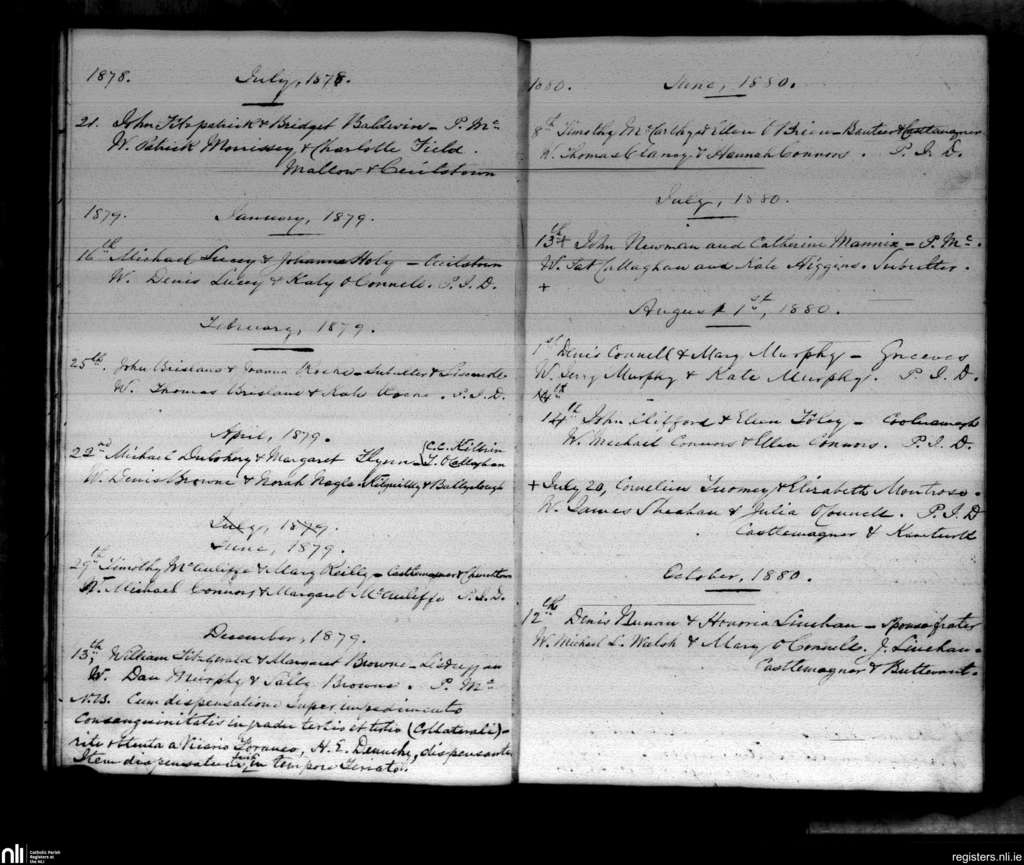 1878. July, 1878.
21. John Fitzpatrick & Bridget Baldwin – P. Mc
W. Patrick Morrissey & Charlotte Field.
Mallow & Cecilstown
1879. January, 1879.
16th Michael Lucey & Johanna Holy – Cecilstown
W. Denis Lucey & Katy O'Connell. P. J. D.
February, 1879.
25th. John Brislane & Joanna Roche – Subulter &
W. Thomas Brislane & Kate Roche. P. J. D.
April, 1879.
22nd Michael & Margaret Flynn – C.C. Kilbrin
T. O'Callaghan
W. Denis Browne & Norah Nagle – & Ballyclough
July, 1879.
June, 1879.
29th Timothy McAuliffe & Mary Reilly – Castlemagner & Churchtown
W. Michael Connors & Margaret McAuliffe P. J. D.
December, 1879.
13th, William Fitzgerald & Margaret Browne –
W. Dan Murphy & Browne. P. Mc
N.B. Cum dispensatione super impedimento
Consanguinitatis in gradu tertio et tertio (Collaterali) –
rite obtenta a Vicario Foraneo, H. E. dispensante
Item dispensatum in tempore
1880. June, 1880.
8th Timothy McCarthy & Ellen O'Brien – & Castlemagner
W. Thomas Clancy & Hannah Connors. P. J. D.
July, 1880.
13th + John Newman and Catherine Mannix – P. Mc.
W. Pat Callaghan and Kate Higgins. Subulter.
+
August 1st, 1880.
1st Denis Connell & Mary Murphy – Greeves
W. Jerry Murphy & Kate Murphy. P. J. D.
14th
14th John Clifford & Ellen Foley –
W. Michael Connors & Ellen Connors. P. J. D.
+ July 20, Cornelius Twomey & Elizabeth Montrose.
W. James Sheahan & Julia O'Connell. P. J. D
Castlemagner & Kanturk
October, 1880.
12th Denis Nunan & Honoria Linehan – Sponsae frater
W. Michael L. Walsh & Mary O'Connell. J. Linehan –
Castlemagner & Buttevant.
nli Catholic Parish
Registers at
the NLI
registers.nli.ie